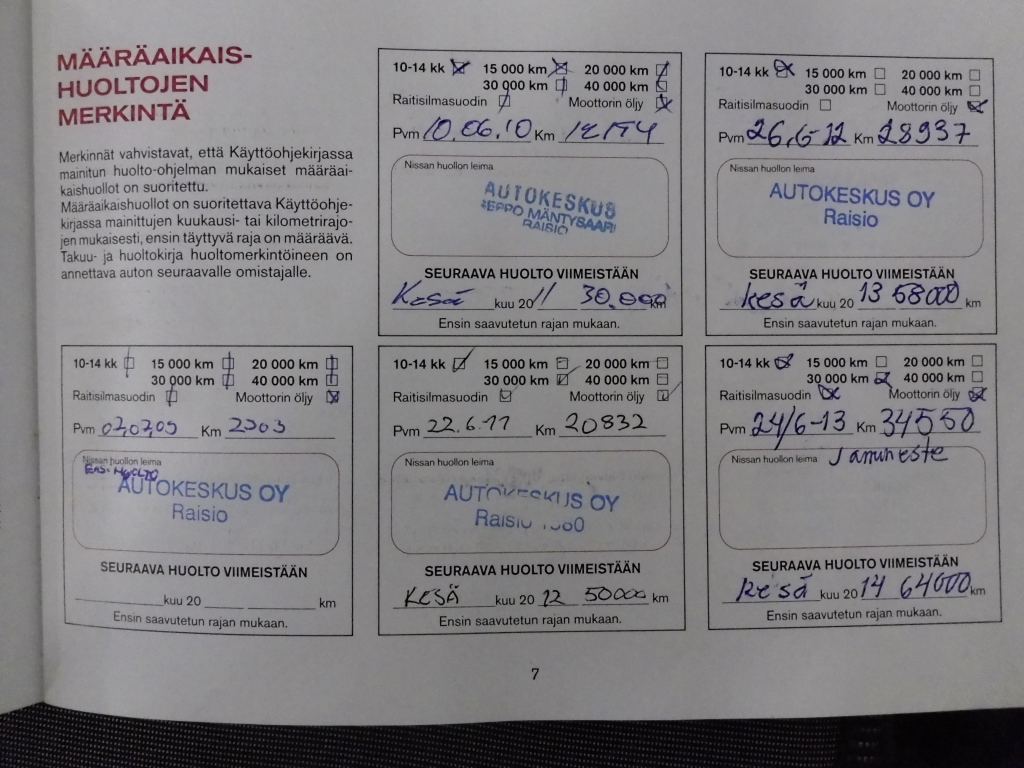 MÄÄRÄAIKAIS-
HUOLTOJEN
MERKINTÄ
Merkinnät vahvistavat, että Käyttöohjekirjassa
mainitun huolto-ohjelman mukaiset määräai-
kaishuollot on suoritettu.
Määräaikaishuollot on suoritettava Käyttöohje-
kirjassa mainittujen kuukausi- tai kilometrirajo-
jen mukaisesti, ensin täyttyvä raja on määräävä.
Takuu- ja huoltokirja huoltomerkintöineen on
annettava auton seuraavalle omistajalle.
10-14 kk 15 000 km 20 000 km
30 000 km 40 000 km
Raitisilmasuodin Moottorin öljy
Pvm 02,07,09 Km 2303
Nissan huollon leima
AUTOKESKUS OY
Raisio
SEURAAVA HUOLTO VIIMEISTÄÄN
kuu 20 km
Ensin saavutetun rajan mukaan.
10-14 kk 15 000 km 20 000 km
30 000 km 40 000 km
Raitisilmasuodin Moottorin öljy
Pvm 10.06.10 Km
Nissan huollon leima
AUTOKESKUS
SEPPO MÄNTYSAARI
RAISIO
SEURAAVA HUOLTO VIIMEISTÄÄN
Kesä kuu 20 11 30.000 km
Ensin saavutetun rajan mukaan.
10-14 kk 15 000 km 20 000 km
30 000 km 40 000 km
Raitisilmasuodin Moottorin öljy
Pvm 22.6.11 Km 20832
Nissan huollon leima
AUTOKESKUS OY
Raisio
SEURAAVA HUOLTO VIIMEISTÄÄN
KESÄ kuu 20 12 50000 km
Ensin saavutetun rajan mukaan.
10-14 kk 15 000 km 20 000 km
30 000 km 40 000 km
Raitisilmasuodin Moottorin öljy
Pvm 26,6-12 Km 28937
Nissan huollon leima
AUTOKESKUS OY
Raisio
SEURAAVA HUOLTO VIIMEISTÄÄN
kesä kuu 20 13 58000 km
Ensin saavutetun rajan mukaan.
10-14 kk 15 000 km 20 000 km
30 000 km 40 000 km
Raitisilmasuodin Moottorin öljy
Pvm 24/6-13 Km 34550
Nissan huollon leima Jarruneste
SEURAAVA HUOLTO VIIMEISTÄÄN
kesä kuu 20 14 64000 km
Ensin saavutetun rajan mukaan.
7